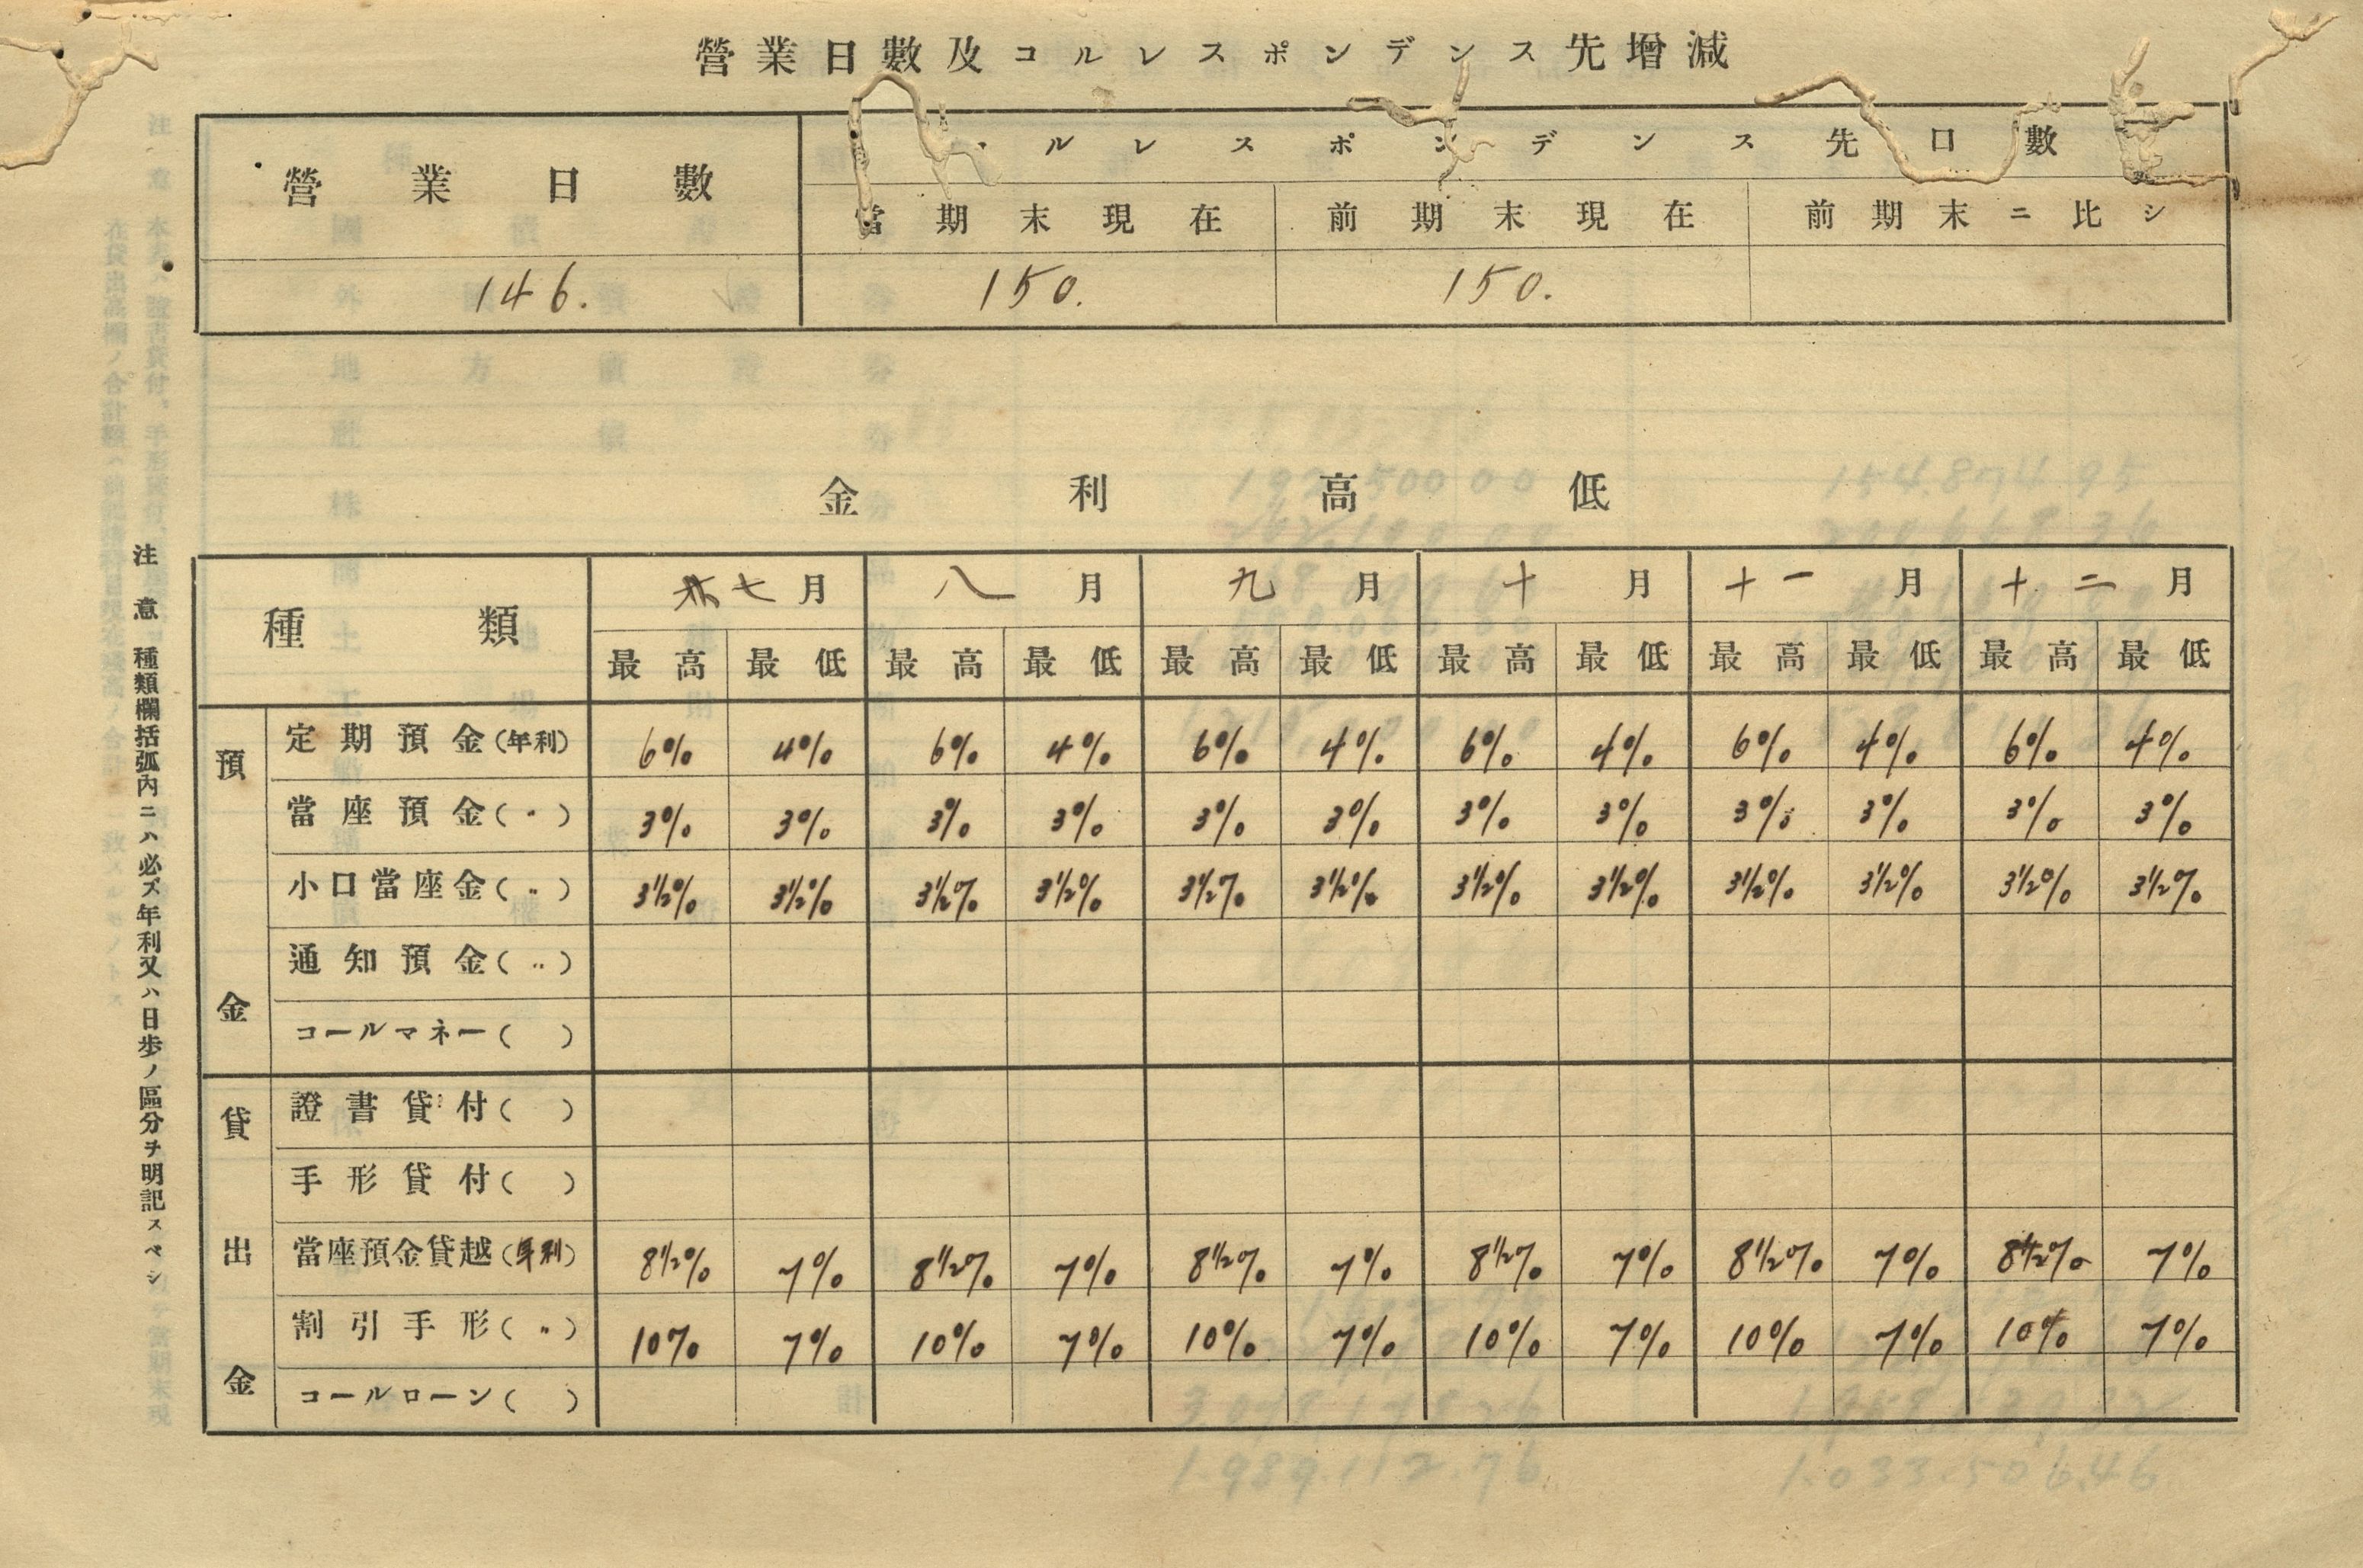 營業日數及コルレスポンデンス先增減
營業日數
ルレスポンデンス先口數
當期末現在 前期末現在 前期末ニ比シ
146. 150. 150.
金利高低
種類 七月 八月 九月 十月 十一月 十二月
最高 最低 最高 最低 最高 最低 最高 最低 最高 最低 最高 最低
預金
定期預金(年利) 6% 4% 6% 4% 6% 4% 6% 4% 6% 4% 6% 4%
當座預金(〃) 3% 3% 3% 3% 3% 3% 3% 3% 3% 3% 3% 3%
小口當座金(〃) 3½% 3½% 3½% 3½% 3½% 3½% 3½% 3½% 3½% 3½% 3½% 3½%
通知預金(〃)
コールマネー( )
貸出金
證書貸付( )
手形貸付( )
當座預金貸越(年利) 8½% 7% 8½% 7% 8½% 7% 8½% 7% 8½% 7% 8½% 7%
割引手形(〃) 10% 7% 10% 7% 10% 7% 10% 7% 10% 7% 10% 7%
コールローン( )
注意 種類欄括弧內ニハ必ズ年利又ハ日步ノ區分ヲ明記スベシ